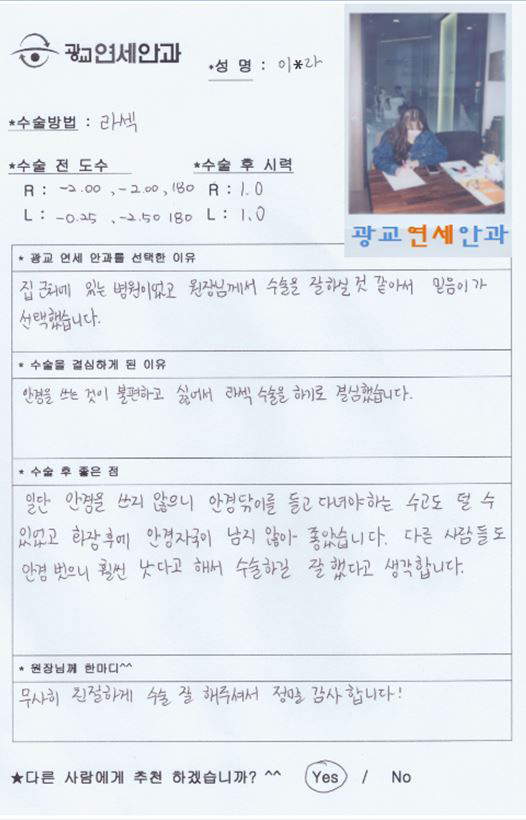 광교연세안과
*성 명 : 이*라
*수술방법 : 라섹
*수술 전 도수 *수술 후 시력
R : -2.00 , -2.00, 180 R : 1.0
L : -0.25 , -2.50 180 L : 1.0
광교연세안과
* 광교 연세 안과를 선택한 이유
집 근처에 있는 병원이었고 원장님께서 수술을 잘하실것 같아서 믿음이가
선택했습니다.
* 수술을 결심하게 된 이유
안경을 쓰는 것이 불편하고 싫어서 라섹 수술을 하기로 결심했습니다.
* 수술 후 좋은 점
일단 안경을 쓰지 않으니 안경닦이를 들고 다녀야하는 수고도 덜 수
있었고 화장후에 안경자국이 남지 않아 좋았습니다. 다른 사람들도
안경 벗으니 훨씬 낫다고 해서 수술하길 잘했다고 생각합니다.
* 원장님께 한마디^^
무사히 친절하게 수술 잘 해주셔서 정말 감사합니다!
★다른 사람에게 추천 하겠습니까? ^^ Yes / No